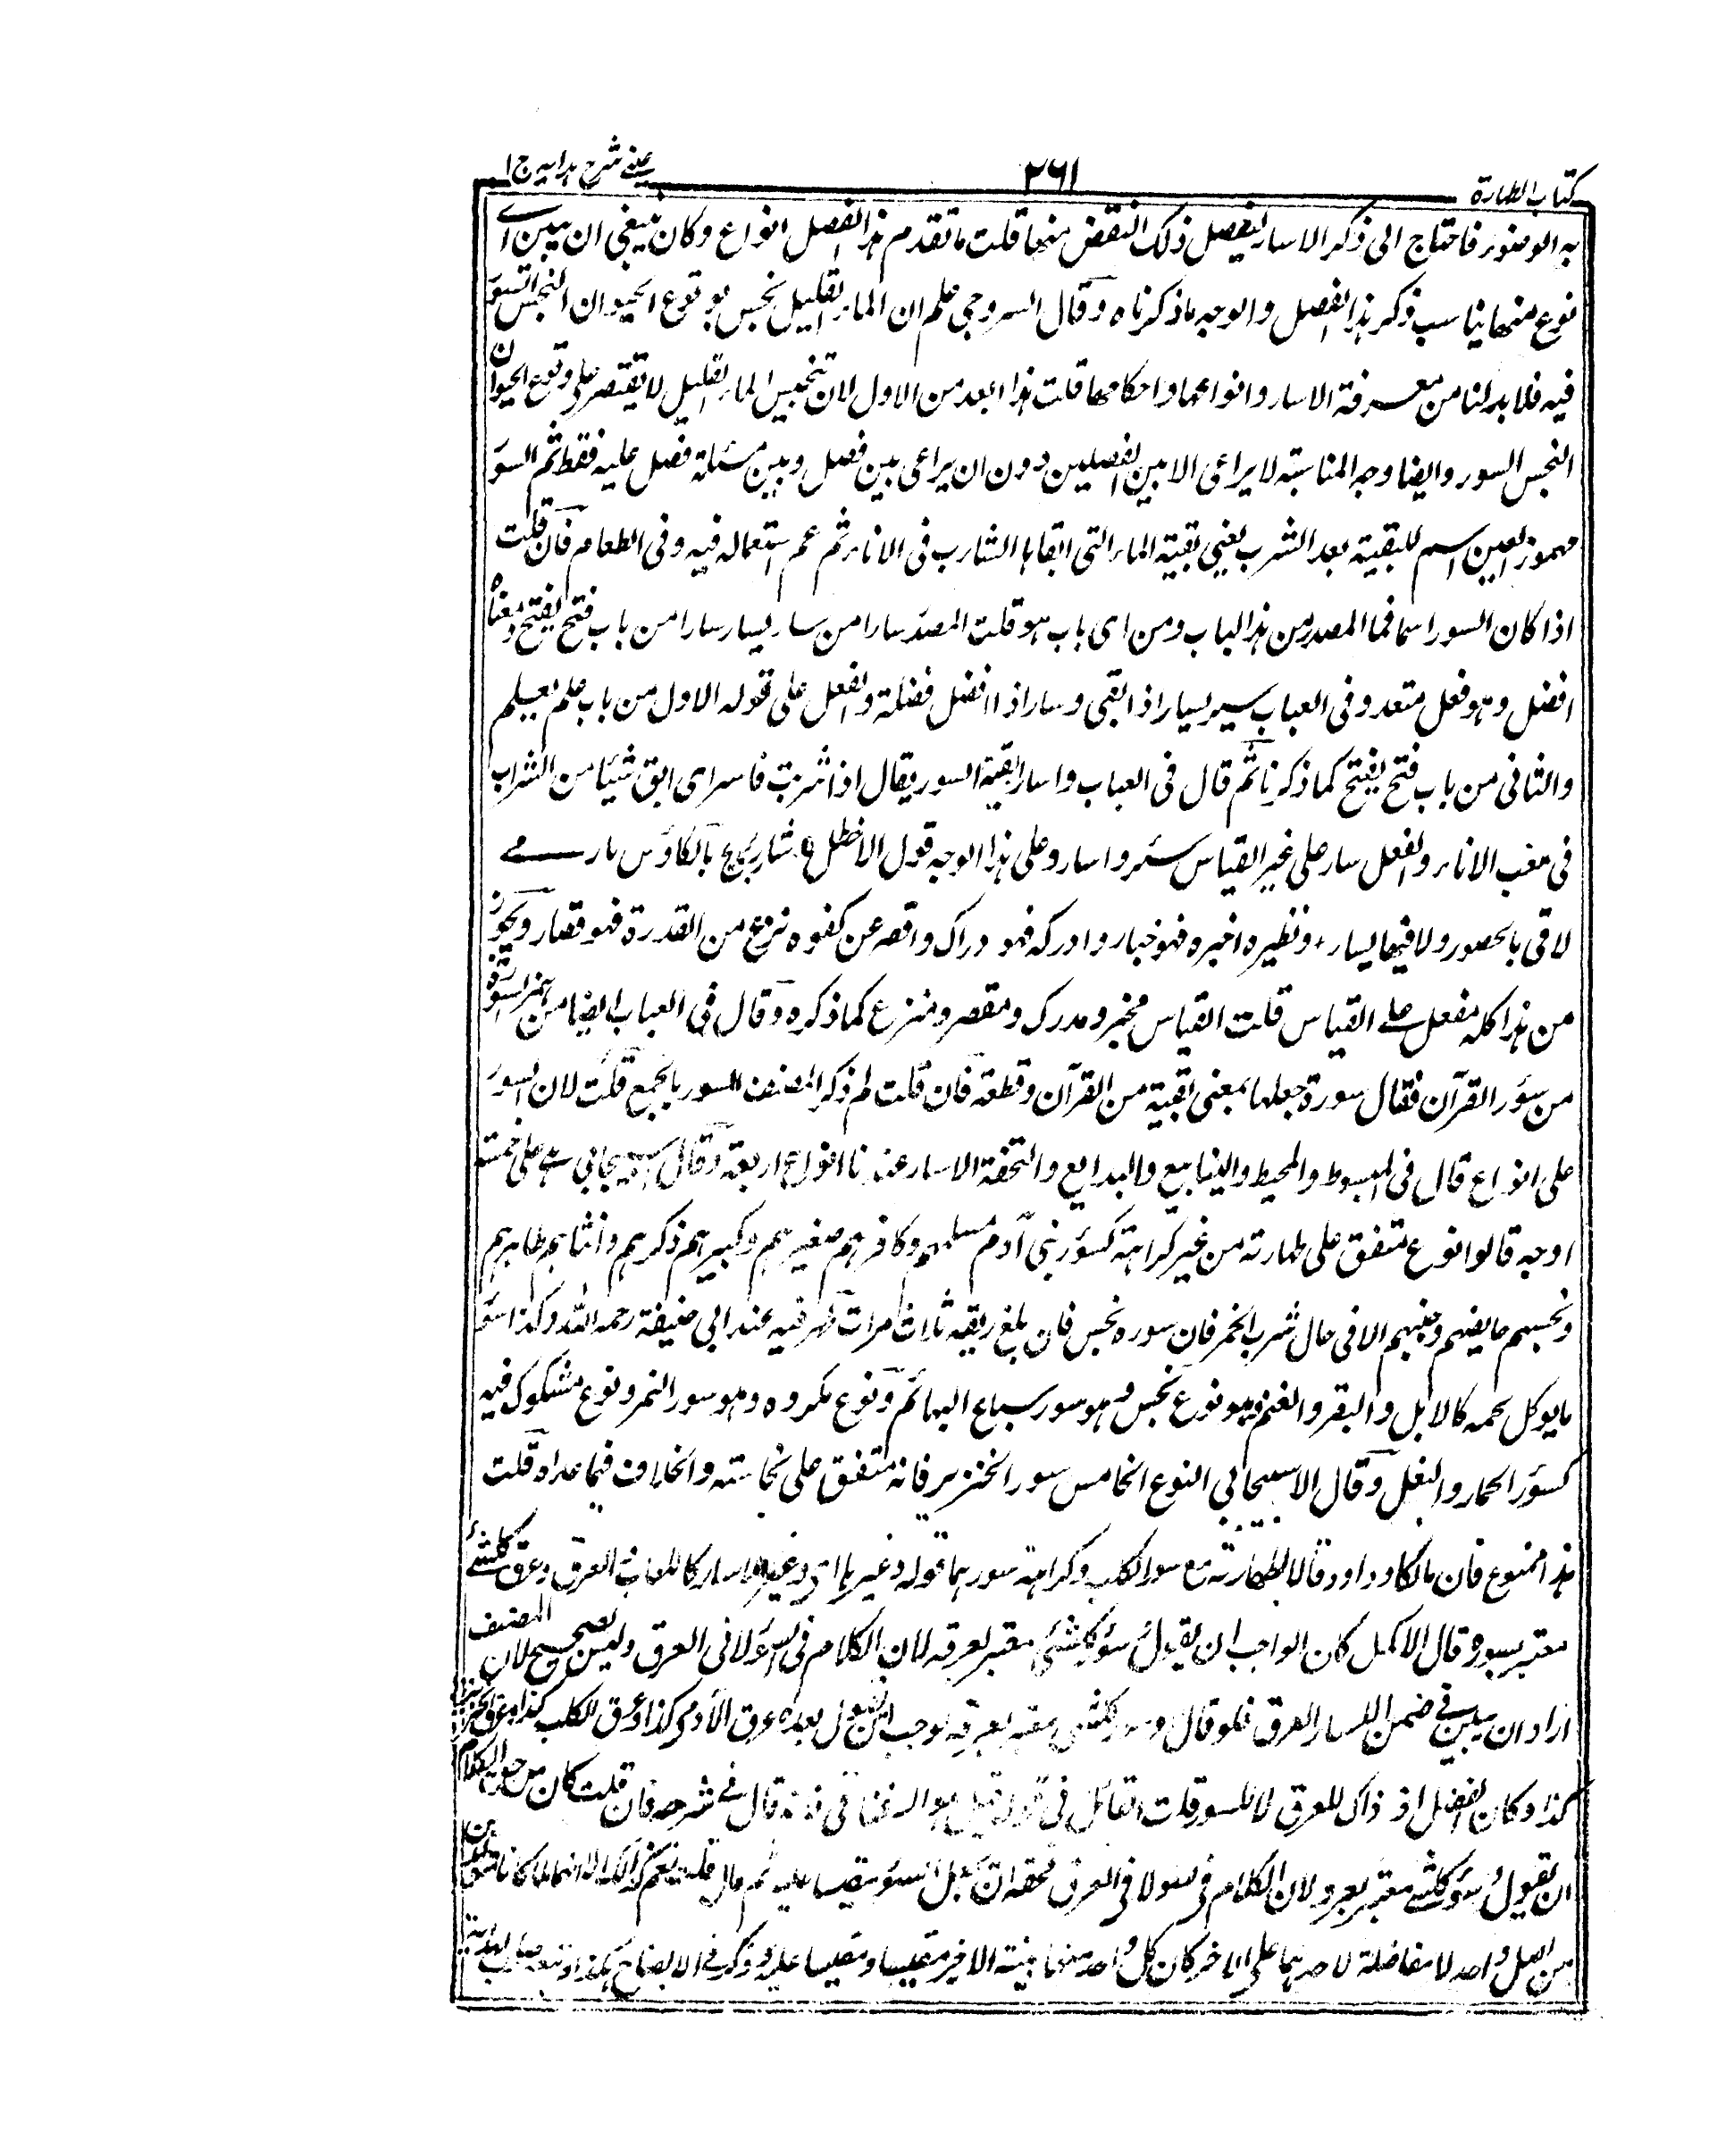 كتاب الطهارة
٢٦١
عينے شرح هدايه ج ١
به الوضوء فاحتاج الى ذكر الاسار ليفصل ذلك النقض منها قلت ما تقدم هذا الفصل انواع وكان ينبغي ان يبين اے
نوع منها يناسب ذكر هذا الفصل والوجه ما ذكرناه وقال السروجي علم ان الماء القليل نجس بوقوع الحيوان النجس السور
فيه فلا بد لنا من معرفة الاسار وانواعها واحكامها قلت هذا ابعد من الاول لان تنجيس الماء القليل لا يقتصر على وقوع الحيوان
النجس السور وايضا وجه المناسبة لا يراعى الا بين الفصلين دون ان يراعى بين فصل وبين مسئلة فصل عليه فقط ثم السور
مهموز العين اسم للبقية بعد الشرب يعني بقية الماء التى ابقاها الشارب فى الاناء ثم عم استعماله فيه وفى الطعام فان قلت
اذا كان السور اسما فما المصدر من هذا الباب ومن اى باب هو قلت المصدر سارا من سار يسار سارا من باب فتح يفتح ومعناه
افضل وهو فعل متعد وفى العباب سير يسار اذا بقى وسار اذا افضل فضلة والفعل على قوله الاول من باب علم يعلم
والثانى من باب فتح يفتح كما ذكرنا ثم قال فى العباب واسار بقية السور يقال اذا شربت فاسر اى ابق شيئا من الشراب
فى مغب الاناء والفعل سار على غير القياس سئر واسار وعلى هذا الوجه قول الاخطل ه شارب مربح بالكاؤس نادمے
لا فى بالحصور ولا فيها بسار، ونظيره اخبره فهو خبار وادركه فهو دراك واقصر عن كفوه نزع من القدرة فهو قصار ويجوز
من هذا كله مفعل على القياس قلت القياس مخبر ومدرك ومقصر ومنزع كما ذكره وقال فى العباب ايضا من همز السورة
من سؤر القرآن فقال سورة جعلها بمعنى بقية من القرآن وقطعة فان قلت لم ذكر المصنف السور بالجمع قلت لان السور
على انواع قال فى المبسوط والمحيط والينابيع والبدايع والتحفة الاسار عندنا انواع اربعة وقال اسبيجابي هے على خمسة
اوجه قالوا نوع متفق على طهارته من غير كراهة كسؤر بنى آدم مسلمهم وكافرهم صغيرهم وكبيرهم ذكرهم وانثاهم طاهرهم
ونجسهم حايضهم وجنبهم الا فى حال شرب الخمر فان سوره نجس فان بلغ ريقه ثلاث مرات طهر فيه عند ابى حنيفة رحمه الله وكذا سور
ما يوكل لحمه كالابل والبقر والغنم ونوع نجس وهو سور سباع البهائم ونوع مكروه وهو سور النمر ونوع مشكوك فيه
كسؤر الحمار والبغل وقال الاسبيجابي النوع الخامس سور الخنزير فانه متفق على نجاسته والخلاف فيما عداه قلت
هذا ممنوع فان مالكا وداود قالا بطهارته مع سور الكلب وكراهة سورهما قوله وغيرها اى وغير الاسار كاللعاب العرق وعرق كل شئ
معتبر بسوره قال الاكمل كان الواجب ان يقول سؤر كل شئ معتبر بعرقه لان الكلام فى السؤر لا فى العرق وليس بصحيح لان المصنف
اراد ان يبين فے ضمن السار العرق فلو قال وسور كل شئ معتبر بعرقه لوجب ان يقول بعده عرق الآدمى كذا وعرق الكلب كذا وعرق الخنزير
كذا وكان الفصل اذ ذاك للعرق لا للسور قلت القائل فى قوله قيل هو السغناقى فانه قال فے شرحه فان قلت كان من حق الكلام
ان يقول وسؤر كل شئ معتبر بعرقه لان الكلام فى السور لا فى العرق فحقه ان يجعل السؤر مقيسا عليه ثم قال قلت نعم كذلك الا انهما لما كانا متولدين
من اصل واحد لا مفاضلة لاحدهما على الاخر كان كل واحد منهما بمنزلة الاخر مقيسا ومقيسا عليه وذكر فى الايضاح هكذا وتبعه صاحب الهداية